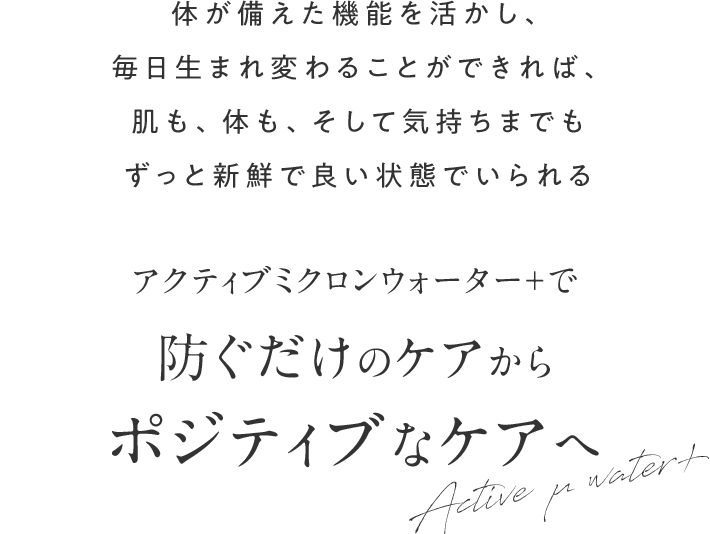 体が備えた機能を活かし、
毎日生まれ変わることができれば、
肌も、体も、そして気持ちまでも
ずっと新鮮で良い状態でいられる
アクティブミクロンウォーター+で
防ぐだけのケアから
ポジティブなケアへ
Active μ water+